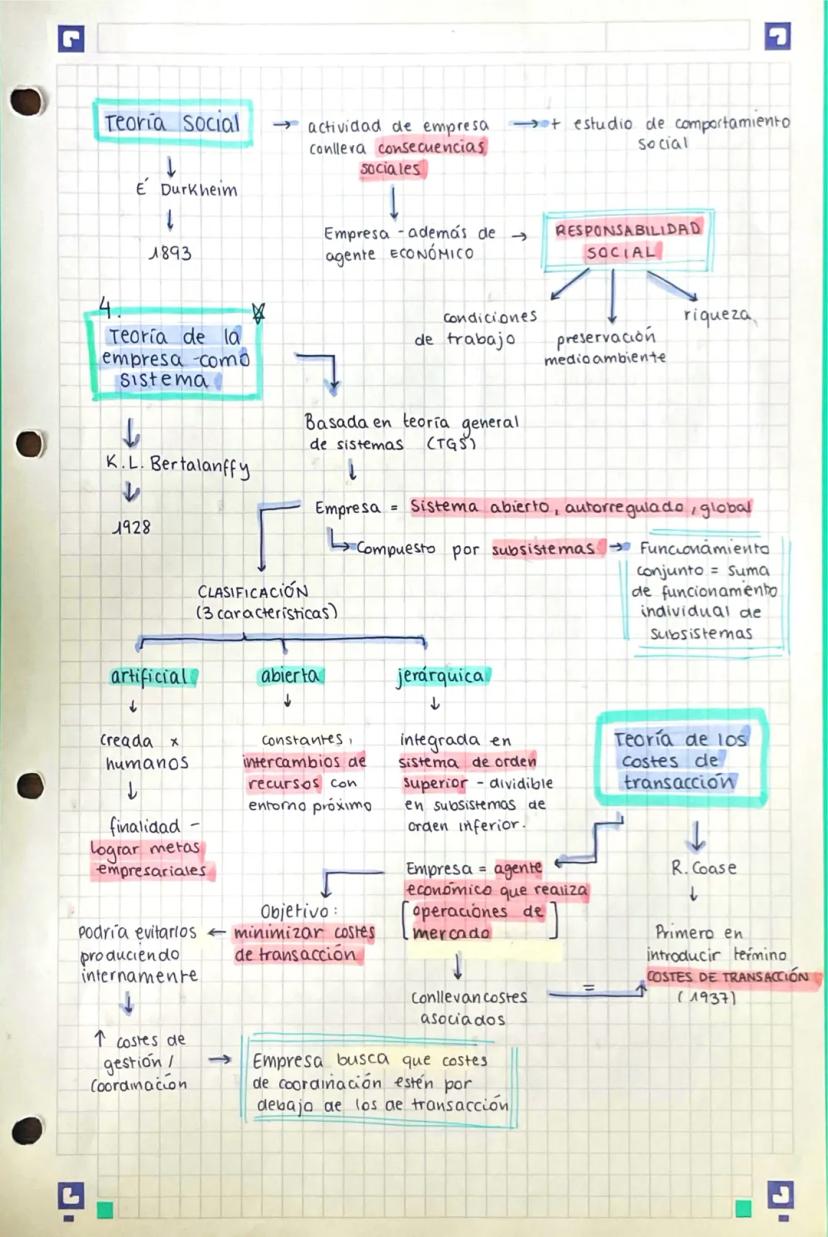 Teoría Social → actividad de empresa → + estudio de comportamiento
conlleva consecuencias
social
sociales
↓
É Durkheim
↓
1893
Empresa - además de →
agente ECONÓMICO
RESPONSABILIDAD
SOCIAL
condiciones
de trabajo
preservación
medioambiente
riqueza
4.
Teoría de la
empresa como
sistema
K.L. Bertalanffy
1928
Basada en teoría general
de sistemas (TGS)
↓
Empresa = Sistema abierto, autorregulado, global
Compuesto por subsistemas →
Funcionamiento
conjunto = suma
de funcionamento
individual de
subsistemas
CLASIFICACIÓN
(3 características)
artificial
↓
creada x
humanos
↓
finalidad -
lograr metas
empresariales
abierta
↓
constantes
intercambios de
recursos con
entorno próximo
jerárquica
↓
integrada en
sistema de orden
superior - dividible
en subsistemas de
orden inferior.
Teoría de los
costes de
transacción
R. Coase
↓
Primero en
introducir término
COSTES DE TRANSACCIÓN
(1937)
Empresa = agente
económico que realiza
[operaciones de
mercado]
↓
Conllevan costes
asociados
=
Objetivo:
minimizar costes
de transacción
←
Podría evitarlos
produciendo
internamente
↓
↑ costes de
gestión /
coordinación
→
Empresa busca que costes
de coordinación estén por
debajo de los de transacción